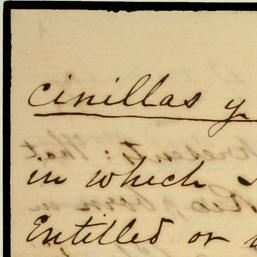 cinillas y
in which
Entitled or